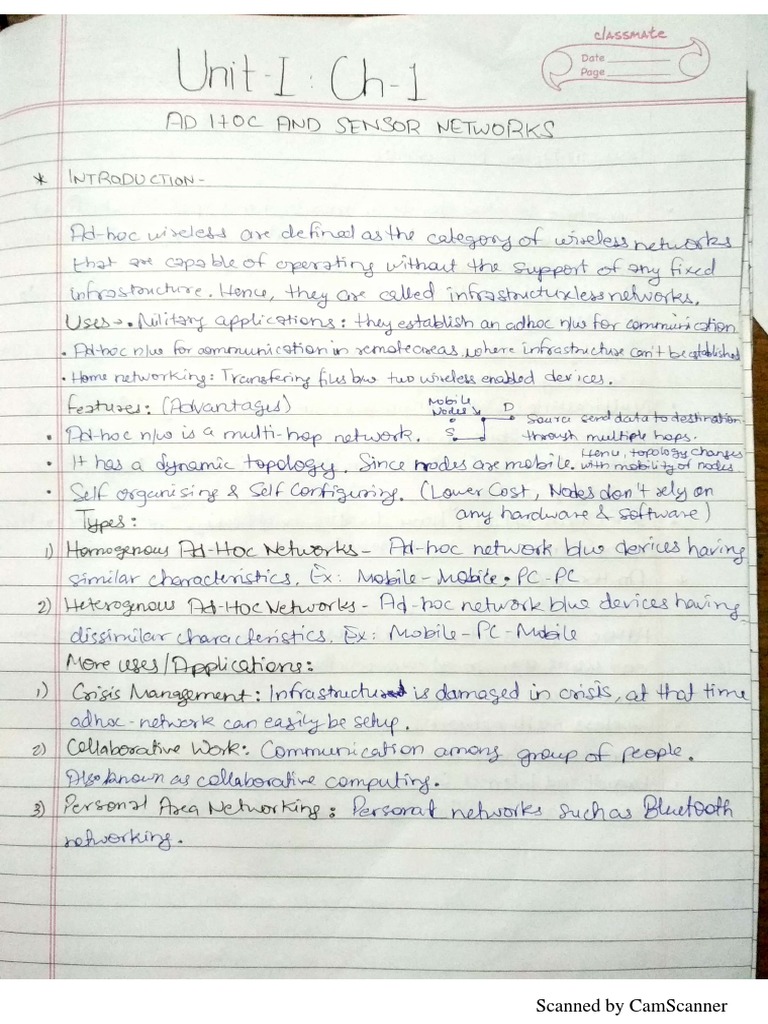 classmate
Date
Page
Unit-I : Ch-1
AD HOC AND SENSOR NETWORKS
* INTRODUCTION-
Ad-hoc wireless are defined as the category of wireless networks
that are capable of operating without the support of any fixed
infrastructure. Hence, they are called infrastructureless networks.
Uses→ • Military applications: they establish an adhoc n/w for communication
• Ad-hoc n/w for communication in remote areas, where infrastructure can't be established
• Home networking: Transfering files b/w two wireless enabled devices.
Features: (Advantages)
Mobile Nodes
S
D
Source send data to destination
• Ad-hoc n/w is a multi-hop network.
through multiple hops.
• It has a dynamic topology. Since nodes are mobile.
Hence, topology changes
with mobility of nodes
• Self organising & Self Configuring. (Lower Cost, Nodes don't rely on
any hardware & software)
Types:
1) Homogenous Ad-Hoc Networks - Ad-hoc network b/w devices having
similar characteristics. Ex: Mobile-Mobile, PC-PC
2) Heterogenous Ad-Hoc Networks - Ad-hoc network b/w devices having
dissimilar characteristics. Ex: Mobile-PC-Mobile
More uses/Applications:
1) Crisis Management: Infrastructure is damaged in crisis, at that time
adhoc-network can easily be setup.
2) Collaborative Work: Communication among group of people.
Also known as collaborative computing.
3) Personal Area Networking: Personal networks such as Bluetooth
networking.
Scanned by CamScanner